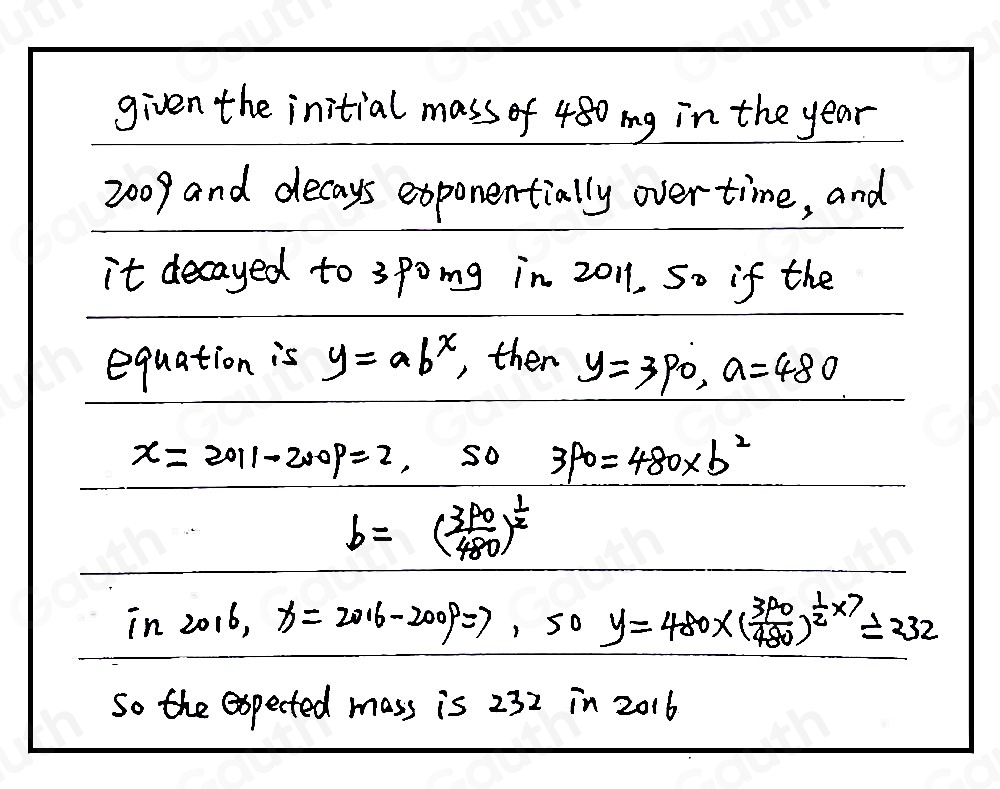 given the initial mass of 480 mg in the year
2009 and decays exponentially over time, and
it decayed to 390 mg in 2011. So if the
equation is y = ab^x, then y = 390, a = 480
x = 2011 - 2009 = 2, so 390 = 480 × b^2
b = (390/480)^(1/2)
in 2016, x = 2016 - 2009 = 7, so y = 480 × (390/480)^(1/2 × 7) ≐ 232
So the expected mass is 232 in 2016
Gauth